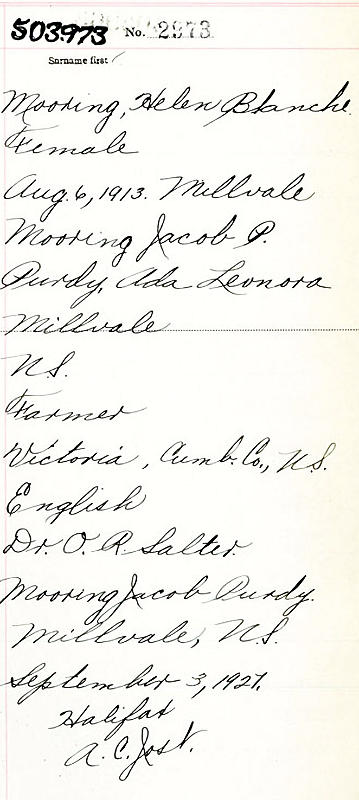 503973 No. 2973
Surname first
Mooring, Helen Blanche.
Female
Aug. 6, 1913. Millvale
Mooring Jacob P.
Purdy, Ada Leonora
Millvale
N.S.
Farmer
Victoria, Cumb. Co., N.S.
English
Dr. O. R. Salter.
Mooring Jacob Purdy.
Millvale, N.S.
September 3, 1927.
Halifax
A. C. Jost.